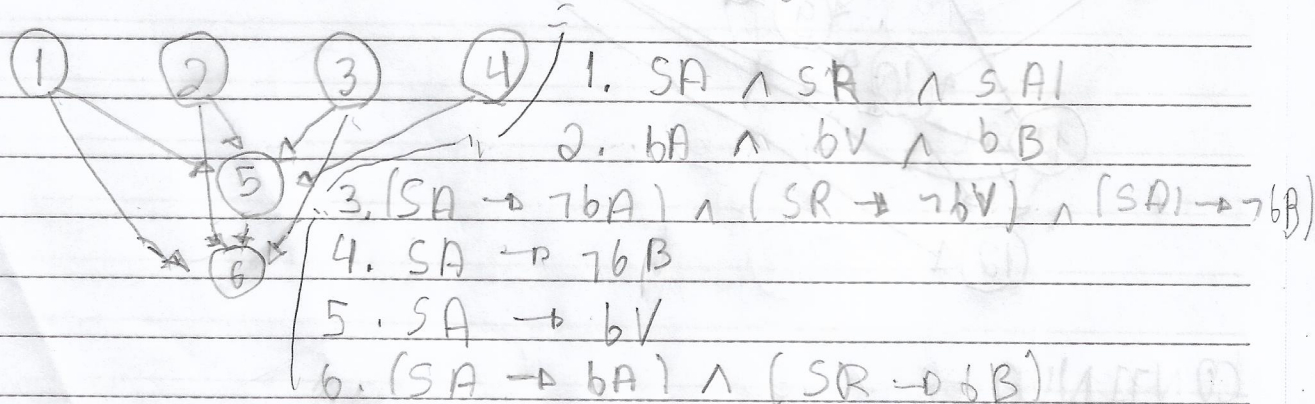 1 2 3 4 1. SA ∧ SR ∧ SAI
2. bA ∧ bV ∧ bB
5 3. (SA → ¬bA) ∧ (SR → ¬bV) ∧ (SAI → ¬bB)
6 4. SA → ¬bB
5. SA → bV
6. (SA → bA) ∧ (SR → bB)